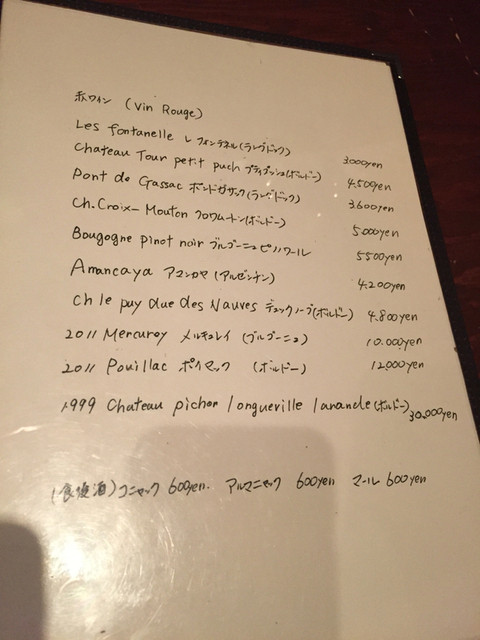 赤ワイン (Vin Rouge)
Les fontanelle レ フォンテネル(ラングドック) 3000yen
Chateau Tour petit puch プティプッシュ(ボルドー) 4.500yen
Pont de Gassac ポンドガサック(ラングドック) 3.600yen
Ch.Croix-Mouton クロワムートン(ボルドー) 5000yen
Bougogne pinot noir ブルゴーニュピノノワール 5500yen
Amancaya アマンカヤ (アルゼンチン) 4.200yen
Ch le puy due des Nauves デュックノーブ(ボルドー) 4.800yen
2011 Mercurey メルキュレイ (ブルゴーニュ) 10.000yen
2011 Pouillac ポイヤック (ボルドー) 12000yen
1999 Chateau pichon longueville lalande(ボルドー) 30.000yen
(食後酒) コニャック 600yen. アルマニャック 600yen マール 600yen